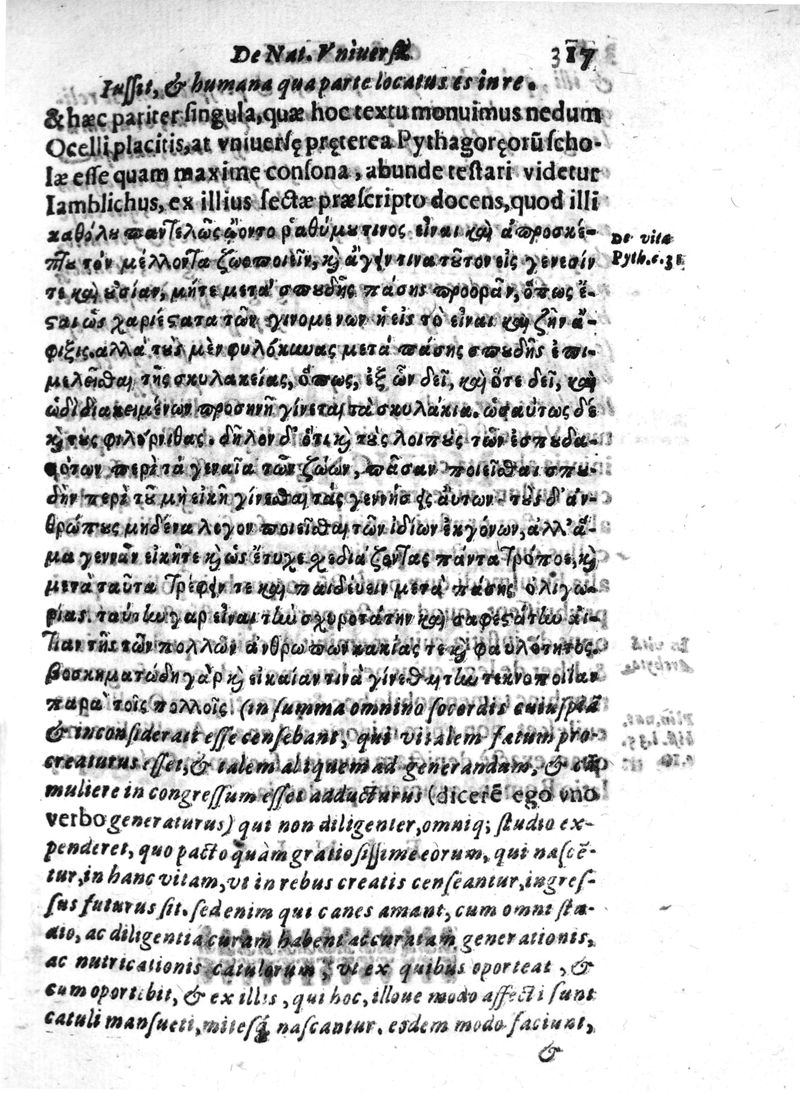 De Nat. Vniuersæ 317
Iussit, & humana qua parte locatus es in re.
& hæc pariter singula, quæ hoc textu monuimus nedum
Ocelli placitis, at vniuersę pręterea Pythagoręorū scho-
læ esse quam maximè consona, abunde testari videtur
Iamblichus, ex illius sectæ præscripto docens, quod illi
καθόλου παντελῶς ᾤοντο ῥαθύμου τινος εἶναι καὶ ἀπροσκέ-
πτου τὸν μέλλοντα ζωοποιεῖν, καὶ ἄγειν τινα τοῦτον εἰς γενεσίν
τε καὶ οὐσίαν, μήτε μετὰ σπουδῆς πάσης προορᾶν, ὅπως ἔ-
σται ὡς χαριέστατα τῶν γινομενων ἡ εἰς τὸ εἶναι καὶ ζῆν ἄ-
φιξις. αλλὰ τοὺς μὲν φυλόκυνας μετὰ πάσης σπουδῆς ἐπι-
μελεῖσθαι τῆς σκυλακείας, ὅπως, ἐξ ὧν δεῖ, καὶ ὅτε δεῖ, καὶ
ὡδὶ διακειμένων προσηνῆ γίνεται τὰ σκυλάκια. ὡσαύτως δὲ
καὶ τοὺς φιλούρνιθας. δῆλον δ' ὅτι καὶ τοὺς λοιποὺς τῶν ἐσπουδα-
κότων περὶ τὰ γεναῖα τῶν ζώων, πᾶσαν ποιεῖσθαι σπου-
δὴν περὶ τοῦ μὴ εἰκῆ γίνεσθαι τὰς γεννήσεις αὐτων. τοὺς δ' ἀν-
θρώπους μηδένα λεγον ποιεῖσθαι τῶν ἰδίων ἐκγόνων, ἀλλ' ἅ-
μα γεννᾶν εἰκῆ τε καὶ ὡς ἔτυχε σχεδιάζοντας πάντα τρόπος, καὶ
μετὰ ταῦτα τρέφειν τε καὶ παιδεύειν μετὰ πάσης ὀλιγω-
ρίας. ταύτην γαρ εἶναι τὴν ἰσχυροτάτην καὶ σαφεστάτην αἰ-
τίαν τῆς τῶν πολλῶν ἀνθρωπων κακίας τε καὶ φαυλότητος.
βοσκηματώδη γὰρ καὶ εἰκαίαν τινὰ γίνεσθαι τὴν τεκνοποιΐαν
παρὰ τοῖς πολλοῖς. (in summa omnino socordis cuiuspiā
& inconsiderati esse censebant, qui vitalem fatum pro-
creaturus esset, & talem aliquem ad generandam, & cū
muliere in congressum esset adducturus (dicerē ego vno
verbo generaturus) qui non diligenter, omniq; studio ex-
penderet, quo pacto quàm gratiosissime eorum, qui nascē-
tur, in hanc vitam, vt in rebus creatis censeantur, ingres-
sus futurus sit. sed enim qui canes amant, cum omni stu-
dio, ac diligentia curam habent accuratam generationis,
ac nutricationis catulorum, vt ex quibus oporteat, &
cum oportebit, & ex illis, qui hoc, illoue modo affecti sunt
catuli mansueti, mitesq́ nascantur. eodem modo faciunt,
&
De vita
Pyth. c. 31